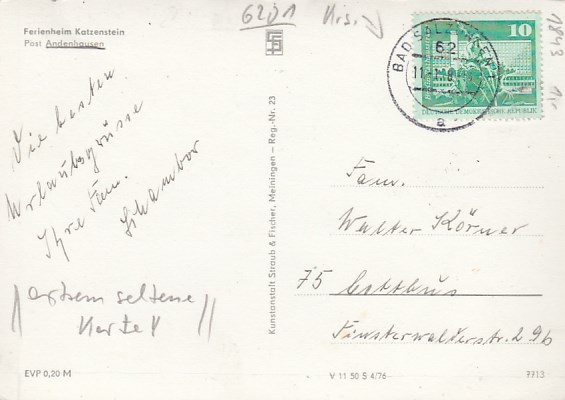 Ferienheim Katzenstein
Post Andenhausen
6201
1843
Die besten
Urlaubsgrüsse
Ihre Fam.
extrem seltene
Karte!
EVP 0,20 M
Kunstanstalt Straub & Fischer, Meiningen - Reg.-Nr. 23
BAD SALZUNGEN
62
a
10
DEUTSCHE DEMOKRATISCHE REPUBLIK
Fam.
Walter Körner
75 Cottbus
Finsterwalderstr. 29b
V 11 50 S 4/76
7713